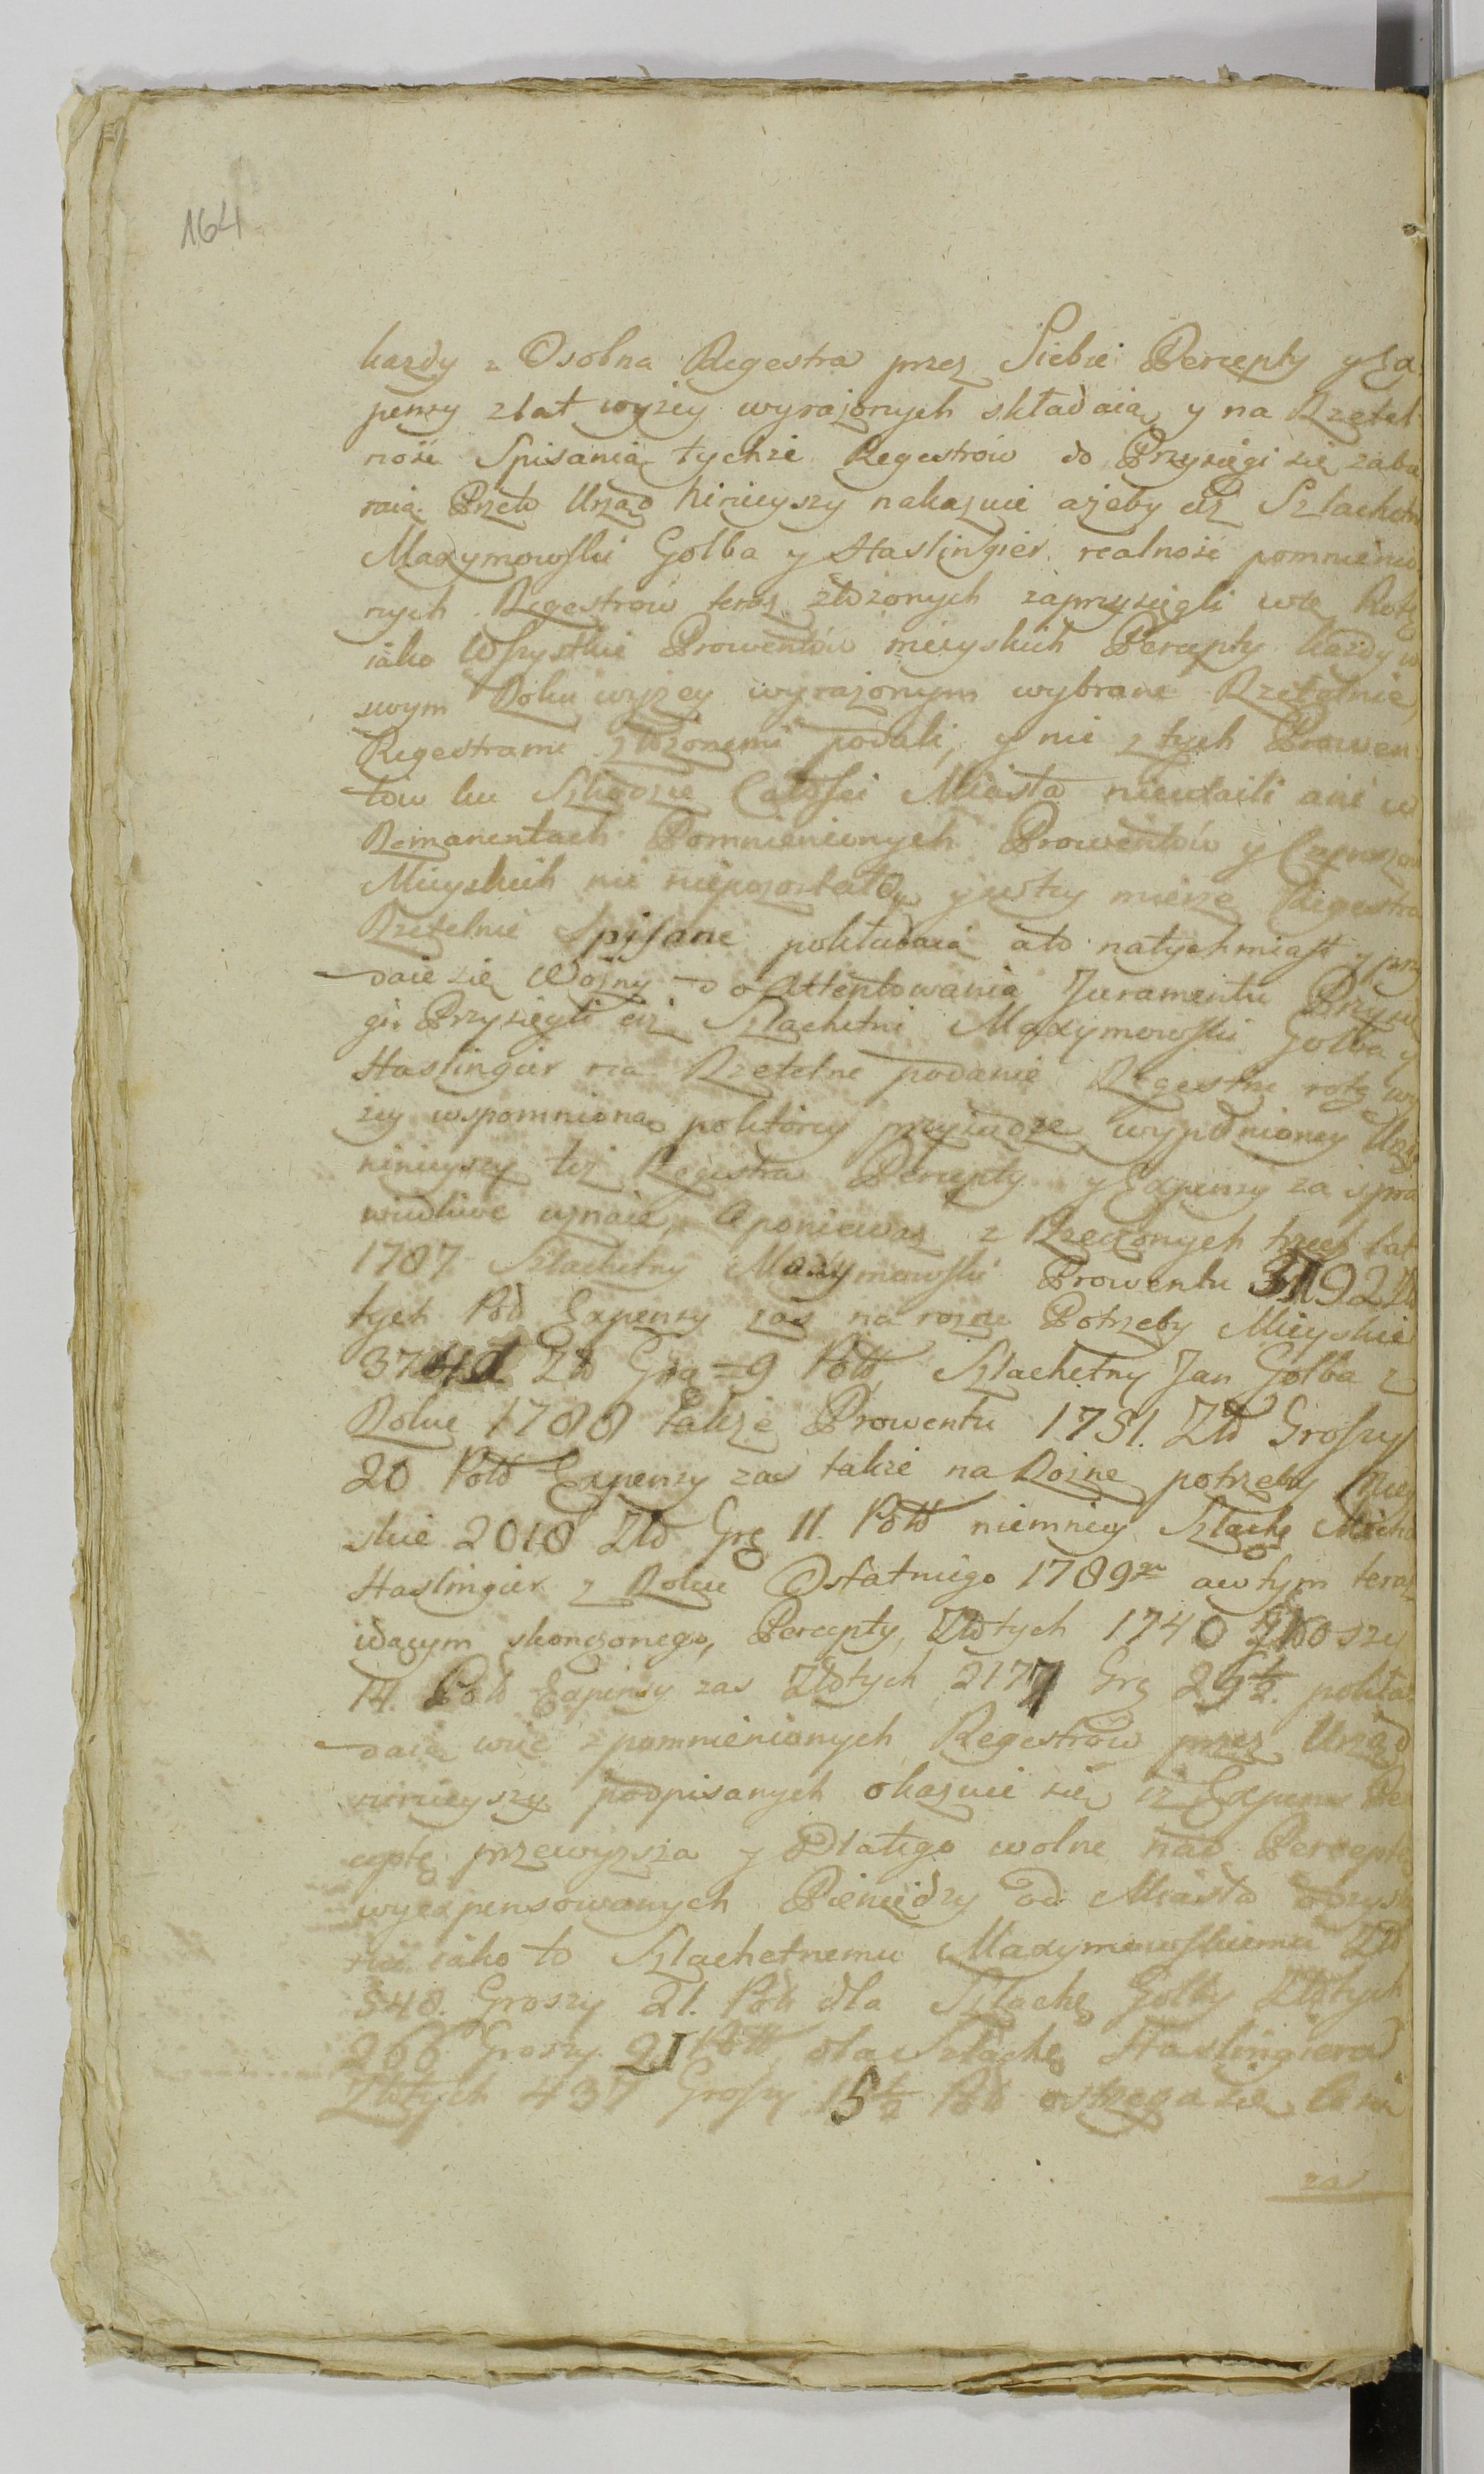 164
kazdy z Osobna Regestra przez Siebie Percepty y Ex
pensy z lat wyzey wyrazonych składaią y na Rzetel
ność Spisania tychże Regestrów do Przysięgi się zabie
raią. Przeto Urząd Ninieyszy nakazuie ażeby ciż Szlachetni
Maxymowski Golba y Haslingier realność pomnienio
nych Regestrów teraz złożonych zaprzysięgli w tę Rotę
iako Wszystkie Prowentów mieyskich Percepty każdy w
swym Roku wyżey wyrażonym wybrane Rzetelnie
Regestrami złożonemi podali, y nic z tych Prowen
tow ku Szkodzie Całości Miasta nieutaili ani w
Remanentach Pomnienionych Prowentów y Czynszow
Mieyskich nic niepozostało y w tey mierze Regestra
Rzetelnie Spisane pokładaią a to natychmiast y przy
daie się Woźny do Attentowania Juramentu Przysię
gi. Przysięgli ciż Szlachetni Maxymowski Golba y
Haslingier na Rzetelne podanie Regestru rotę wy
zey wspomnioną po którey przysiędze wypełnioney Urząd
ninieyszy też Regestra Percepty y Expensy za spra
wiedliwe uznaie, A ponieważ z Rzeczonych trzech lat
1787 Szlachetny Maxymowski Prowentu 3192 Zło
tych Pol Expensy zaś na rozne Potrzeby Mieyskie
Zło Gro 9 Pol, Szlachetny Jan Golba z
Roku 1788 także Prowentu 1751. Zło Groszy
20 Pol Expensy zas także na Rożne potrzeby Miey
skie 2018 Zło Grę 11. Pol niemniey Szlachę
Haslingier z Roku Ostatniego 1789go a w tym teraz
idącym skonczonego, Percepty Złotych 1740 Groszy
14. Pol Expensy zas Złotych 2177 Grę 29½. pokła
daią więc z pomnienionych Regestrów przez Urząd
ninieyszy podpisanych okazuie się iż Expens Per
ceptę przewyzsza y Dlatego wolne nad Perceptę
wyexpensowanych Pieniędzy od Miasta odzyska
nie iako to Szlachetnemu Maxymowskiemu Zło
548. Groszy 21. Pol dla Szlachę Golby Złotych
266 Groszy 21 Pol, dla Szlachę Haslingiera
Złotych 437 Groszy 15½ Pol ostrzega się
zas